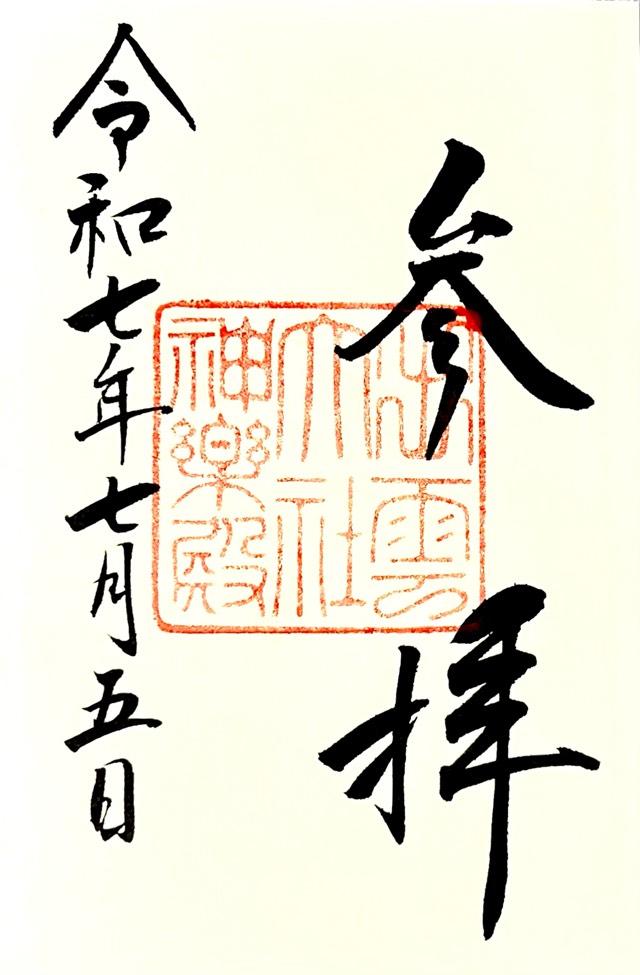 参拝
出雲
大社
神楽殿
令和七年七月五日